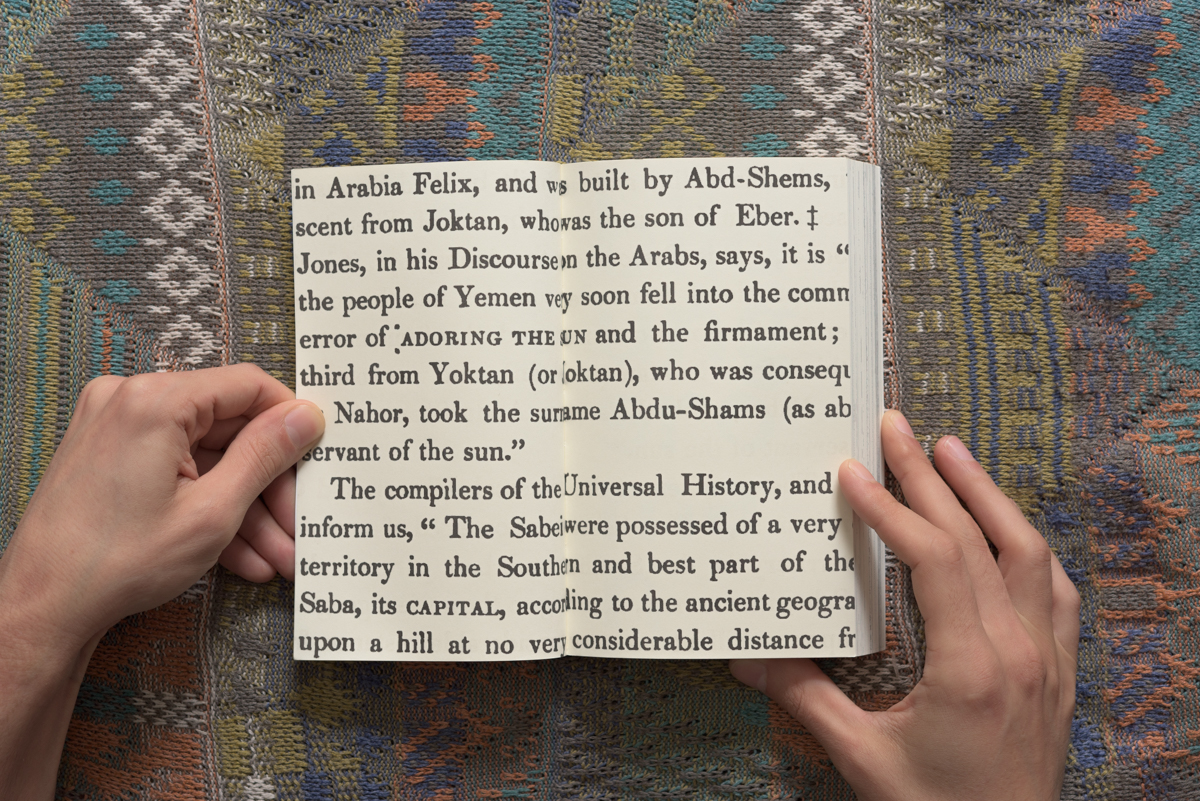 in Arabia Felix, and was built by Abd-Shems,
scent from Joktan, who was the son of Eber. ‡
Jones, in his Discourse on the Arabs, says, it is “
the people of Yemen very soon fell into the comm
error of ADORING THE SUN and the firmament;
third from Yoktan (or Joktan), who was consequ
Nahor, took the surname Abdu-Shams (as ab
servant of the sun.”
The compilers of the Universal History, and
inform us, “ The Sabei were possessed of a very
territory in the Southern and best part of the
Saba, its CAPITAL, according to the ancient geogra
upon a hill at no very considerable distance fr